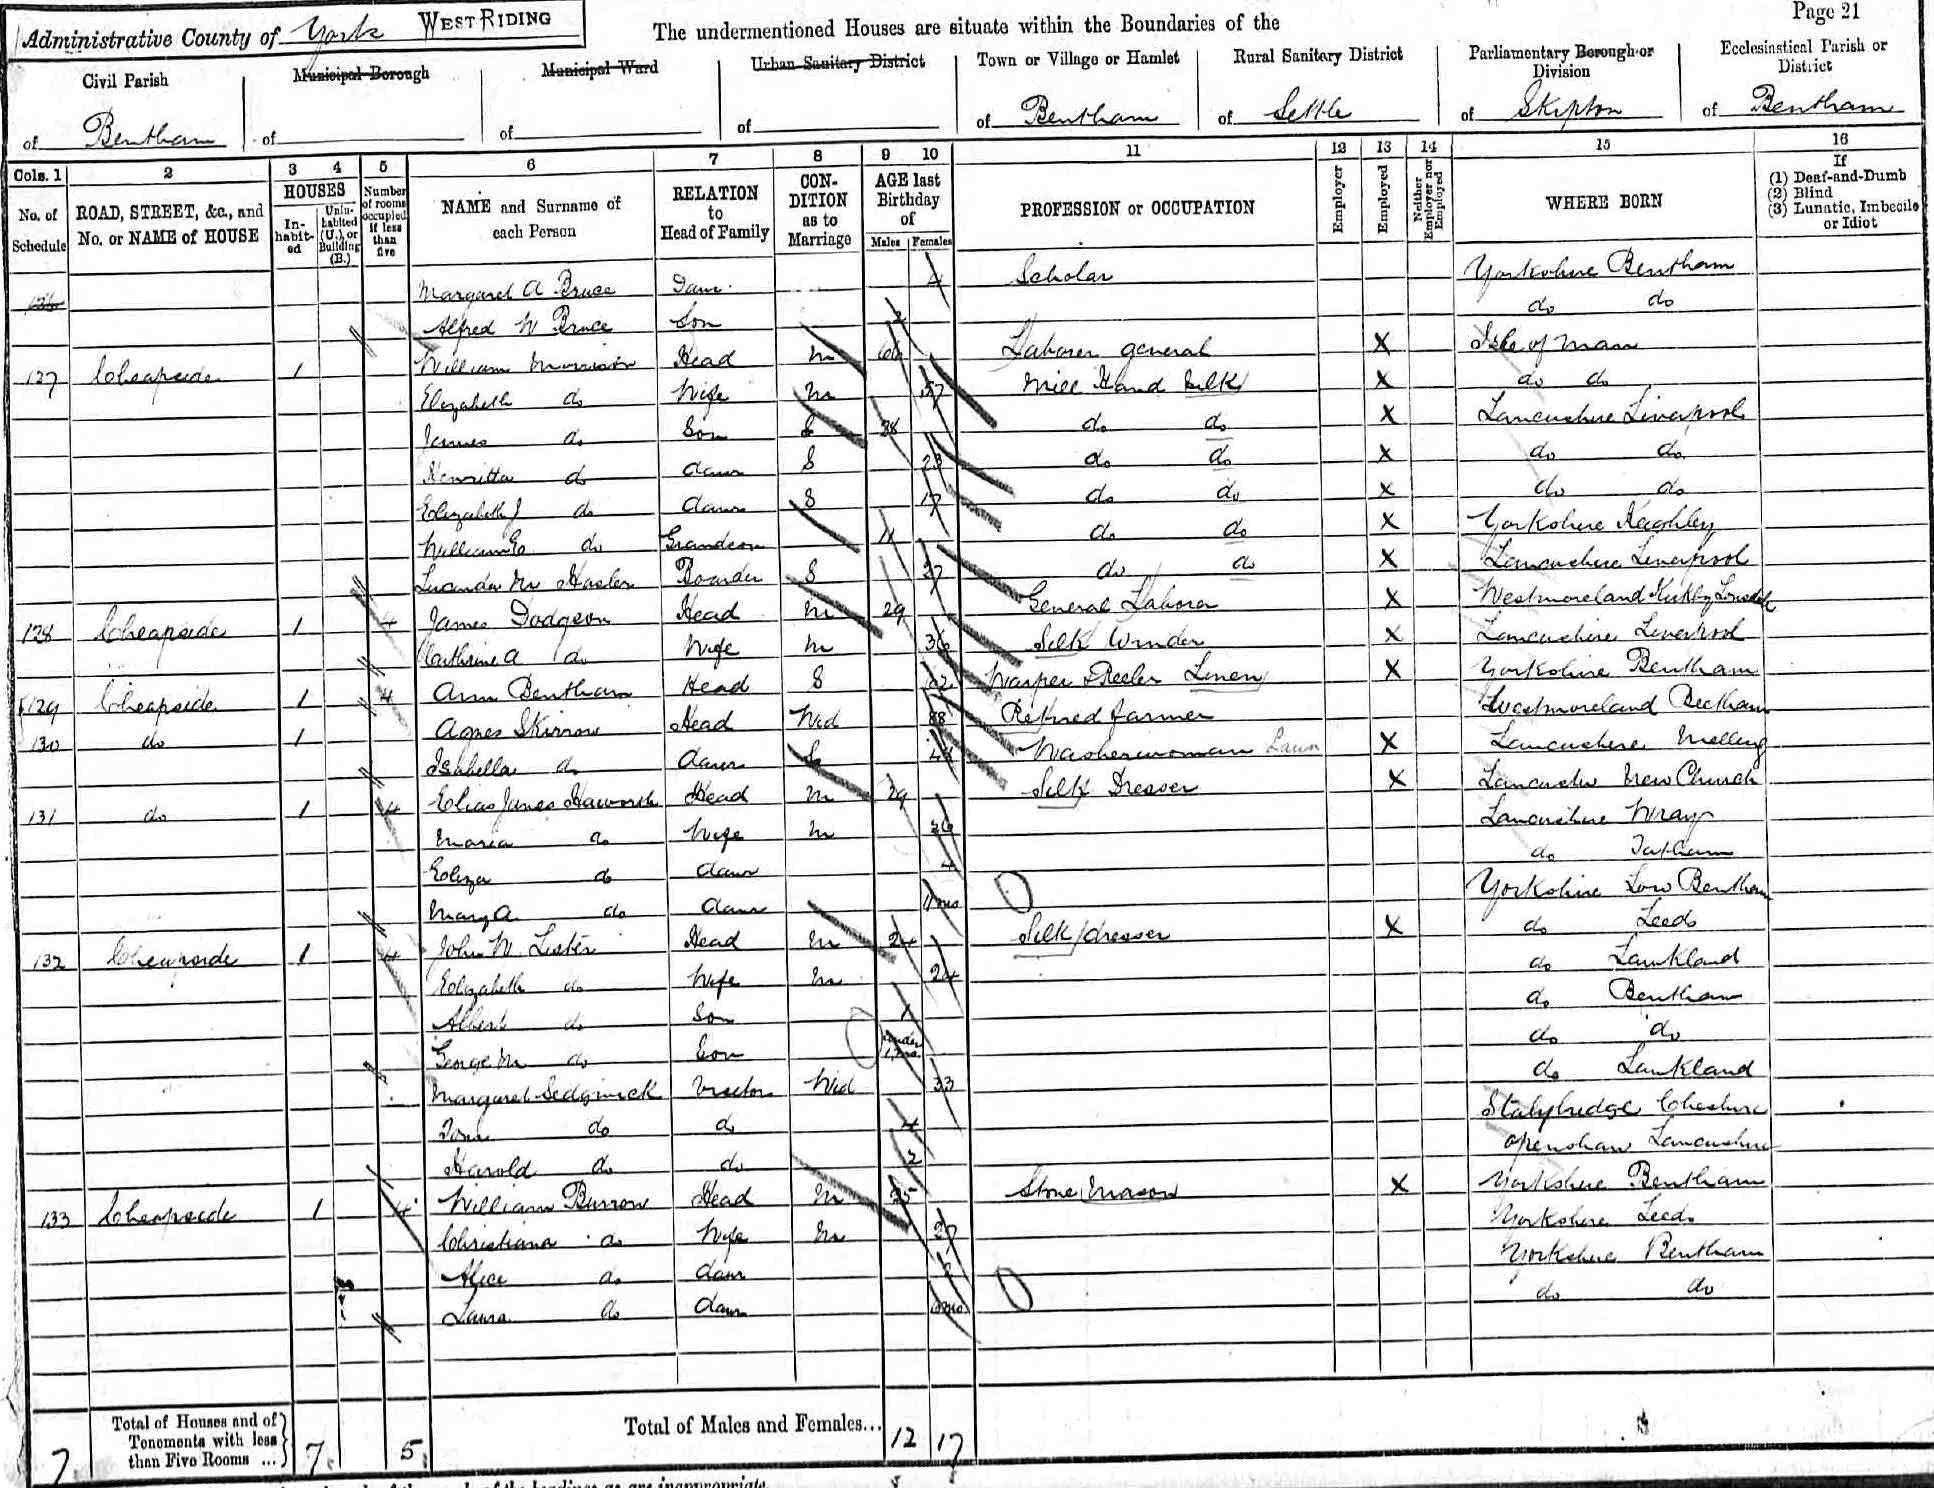 Administrative County of York WEST RIDING
The undermentioned Houses are situate within the Boundaries of the
Page 21
Civil Parish of Bentham
Municipal Borough of
Municipal Ward of
Urban Sanitary District of
Town or Village or Hamlet of Bentham
Rural Sanitary District of Settle
Parliamentary Borough or Division of Skipton
Ecclesiastical Parish or District of Bentham
Cols. 1 2 3 4 5 6 7 8 9 10 11 12 13 14 15 16
No. of Schedule
ROAD, STREET, &c., and No. or NAME of HOUSE
HOUSES
Inhabited
Uninhabited (U.), or Building (B.)
Number of rooms occupied if less than five
NAME and Surname of each Person
RELATION to Head of Family
CONDITION as to Marriage
AGE last Birthday of
Males Females
PROFESSION or OCCUPATION
Employer
Employed
Neither Employer nor Employed
WHERE BORN
If
(1) Deaf-and-Dumb
(2) Blind
(3) Lunatic, Imbecile or Idiot
126 Margaret A Bruce Daur 4 Scholar Yorkshire Bentham
Alfred W Bruce Son 2 do do
127 Cheapside 1 William Morrison Head M Laborer general X Isle of Man
Elizabeth do Wife M 57 Mill Hand Silk X do do
James do Son S 28 do do X Lancashire Liverpool
Henritta do daur S 23 do do X do do
Elizabeth J do daur S 17 do do X do do
William do Grandson 11 do do X Yorkshire Keighley
Boarder S 27 do do X Lancashire Liverpool
128 Cheapside 1 4 James Dodgson Head M 29 General Laborer X Westmoreland Kirkby Lonsdale
Cathrine A do Wife M 36 Silk Winder X Lancashire Liverpool
129 Cheapside 1 4 Ann Bentham Head S 62 Warper & Reeler Linen X Yorkshire Bentham
130 do 1 Agnes Skirrow Head Wid 88 Retired farmer Westmoreland Beetham
Isabella do daur S Washerwoman X Lancashire Melling
131 do 1 4 Elias James Haworth Head M 29 Silk Dresser X Lancashire New Church
Maria do Wife M 26 Lancashire Wray
Eliza do daur 4 do Tatham
Mary A do daur 11 mos Yorkshire Low Bentham
132 Cheapside 1 4 John W Lister Head M 24 Silk dresser X do Leeds
Elizabeth do Wife M 24 do Lawkland
Albert do Son 1 do Bentham
George M do Son under 1 mo do do
Margaret Sedgwick Visitor Wid 33 do Lawkland
do do 4 Stalybridge Cheshire
Harold do do 2 Openshaw Lancashire
133 Cheapside 1 4 William Burrow Head M 25 Stone Mason X Yorkshire Bentham
Christiana do Wife M 27 Yorkshire Leeds
Alice do daur Yorkshire Bentham
Laura do daur do do
7 Total of Houses and of Tenements with less than Five Rooms ... 7 5 Total of Males and Females... 12 17